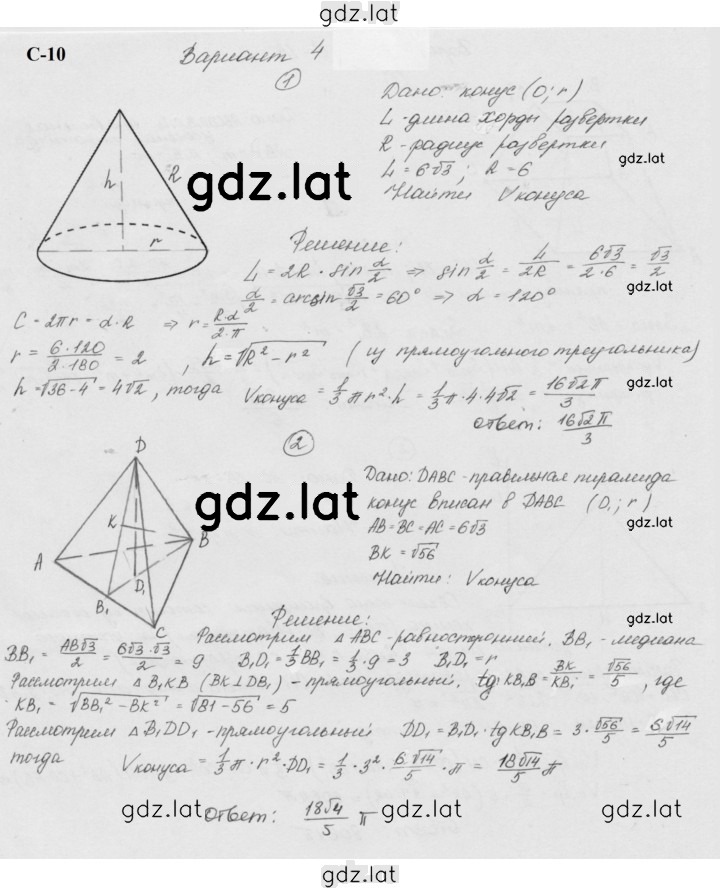 gdz.lat
С-10 Вариант 4
1
Дано: конус (O; r)
L - длина хорды развертки
R - радиус развертки
gdz.lat
L = 6√3 ; R = 6
Найти Vконуса
h R r
gdz.lat
Решение:
L = 2R · sin α/2 ⇒ sin α/2 = L/2R = 6√3/2·6 = √3/2
gdz.lat
α/2 = arcsin √3/2 = 60° ⇒ α = 120°
C = 2πr = α·R ⇒ r = R·α/2·π
r = 6·120/2·180 = 2 , h = √R² - r² (из прямоугольного треугольника)
h = √36-4 = 4√2 , тогда Vконуса = 1/3 πr²·h = 1/3 π·4·4√2 = 16√2π/3
gdz.lat
ответ: 16√2π/3
2
D K A B D₁ B₁ C
gdz.lat
Дано: DABC - правильная пирамида
конус вписан в DABC (O₁; r)
gdz.lat
AB = BC = AC = 6√3
BK = √56
Найти: Vконуса
gdz.lat
Решение:
Рассмотрим △ABC - равносторонний. BB₁ - медиана
BB₁ = AB√3/2 = 6√3·√3/2 = 9 B₁D₁ = 1/3 BB₁ = 1/3·9 = 3 B₁D₁ = r
Рассмотрим △B₁KB (BK⊥DB₁) - прямоугольный. tg KB₁B = BK/KB₁ = √56/5 , где
KB₁ = √BB₁² - BK² = √81-56 = 5
Рассмотрим △B₁DD₁ - прямоугольный DD₁ = B₁D₁ · tg KB₁B = 3·√56/5 = 6√14/5
тогда Vконуса = 1/3 π·r²·DD₁ = 1/3·3²·6√14/5·π = 18√14/5 π
gdz.lat gdz.lat gdz.lat
Ответ: 18√4/5 π
gdz.lat